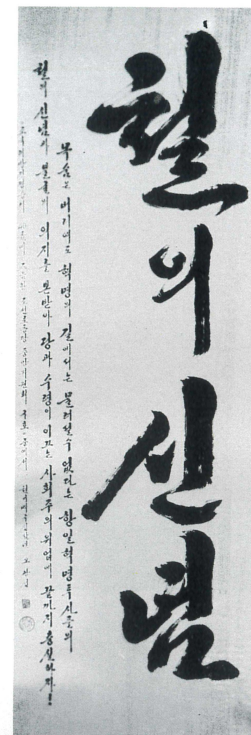 철의 신념
목숨은 버리여도 혁명의 길에서는 물러설수 없다는 항일혁명투사들의
철의 신념과 불굴의 의지를 본받아 당과 수령이 이끄는 사회주의위업에 끝까지 충실하자!